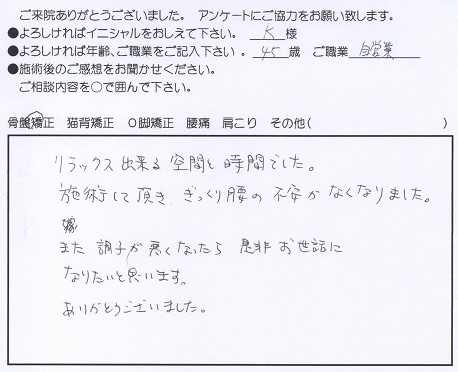 ご来院ありがとうございました。 アンケートにご協力をお願い致します。
●よろしければイニシャルをおしえて下さい。 K 様
●よろしければ年齢、ご職業をご記入下さい 。 45 歳 ご職業 自営業
●施術後のご感想をお聞かせください。
ご相談内容を○で囲んで下さい。
骨盤矯正 猫背矯正 O脚矯正 腰痛 肩こり その他( )
リラックス出来る空間と時間でした。
施術して頂き、ぎっくり腰の不安がなくなりました。
また調子が悪くなったら是非お世話に
なりたいと思います。
ありがとうございました。